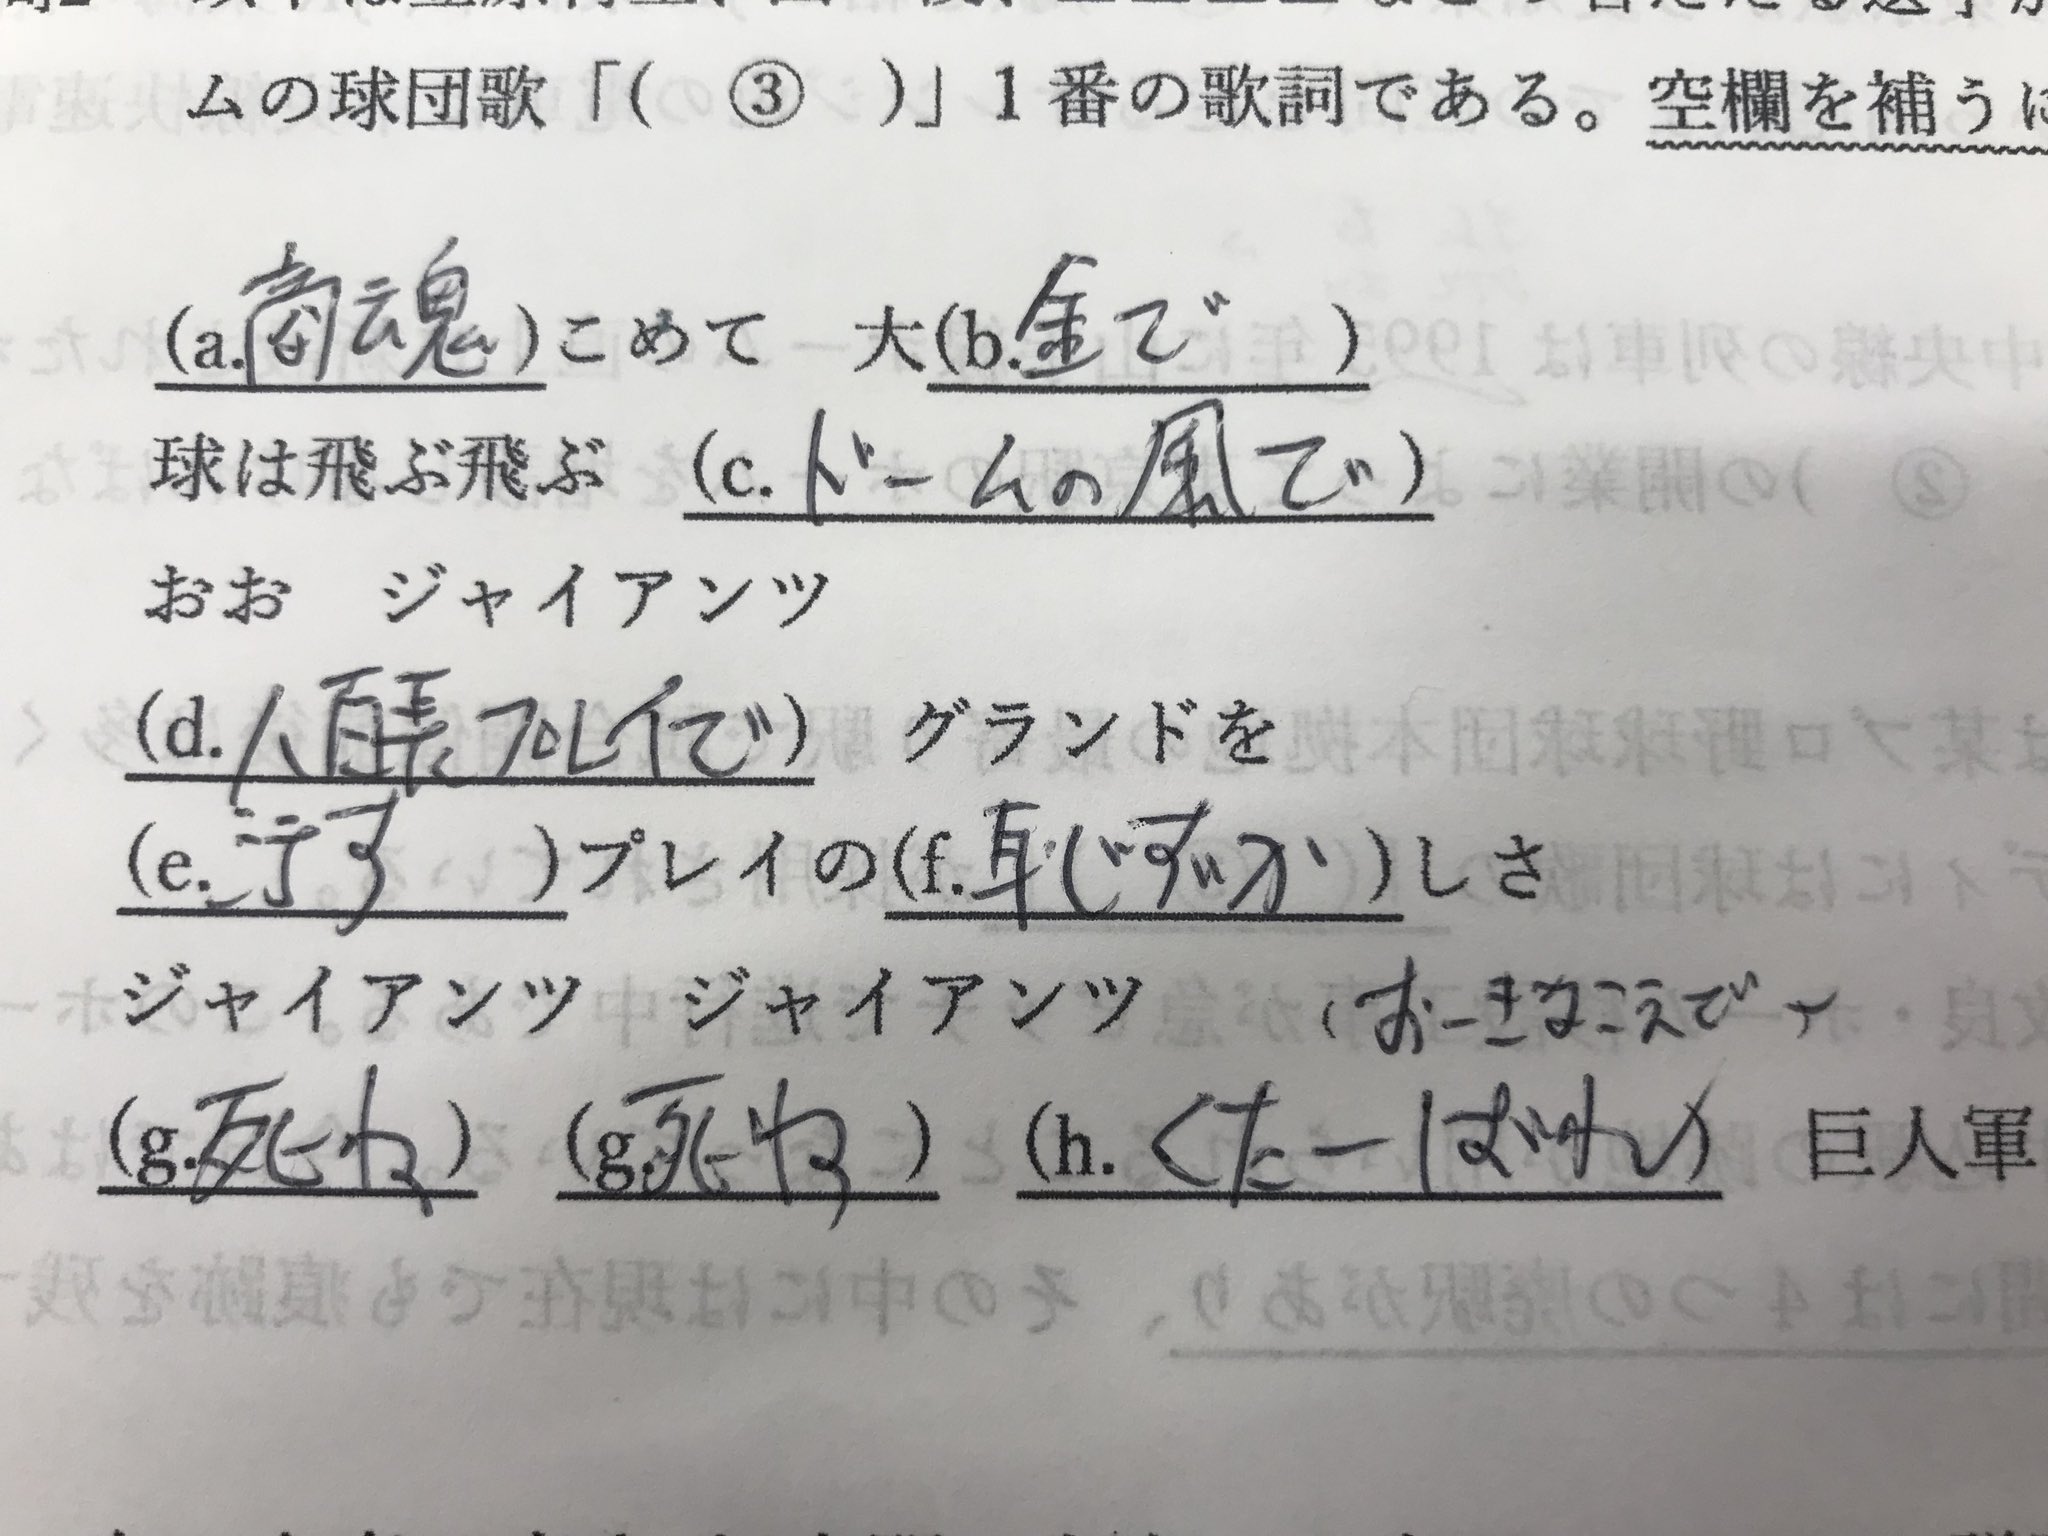 ムの球団歌「( ③ )」1番の歌詞である。空欄を補うに
(a.商魂)こめて 大(b.金で )
球は飛ぶ飛ぶ (c.ドームの風で)
おお ジャイアンツ
(d.八百長プレイで) グランドを
(e.汚す )プレイの(f.恥ずか)しさ
ジャイアンツ ジャイアンツ (おーきなこえで)
(g.死ね) (g.死ね ) (h.くたーばれ) 巨人軍